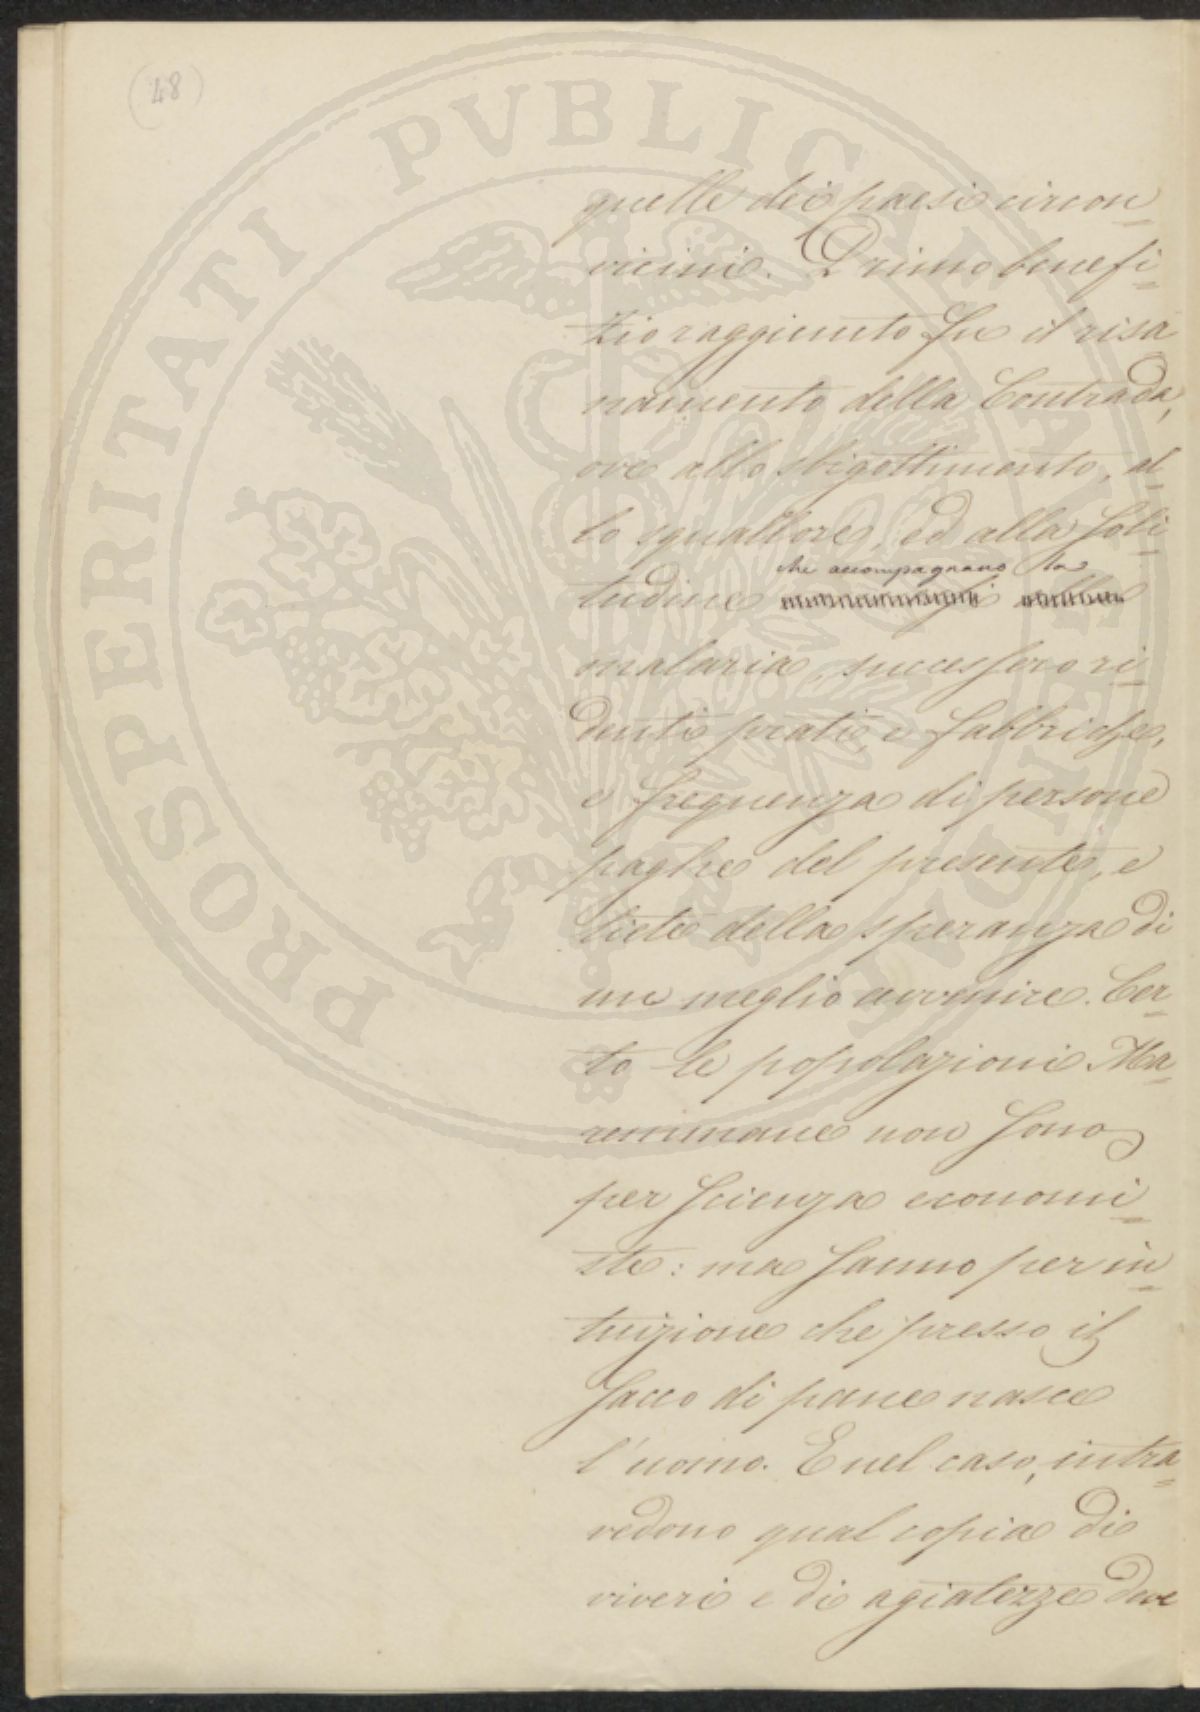 (48)
quelle dei paesi circon=
vicini. Primo benefi=
zio raggiunto fu il risa
namento della Contrada,
ove allo sbigottimento, al=
lo squallore, ed alla soli=
che accompagnano la
tudine
malaria, successero ri=
denti prati, e fabbriche,
e frequenza di persone
paghe del presente, e
liete della speranza di
un meglio avvenire. Cer=
to le popolazioni Ma=
remmane non sono
per scienza economi=
ste: ma sanno per in=
tuizione che presso il
sacco di pane nasce
l'uomo. E nel caso, intra=
vedono qual copia di
viveri e di agiatezze deve
PROSPERITATI PVBLICAE AVGENDAE